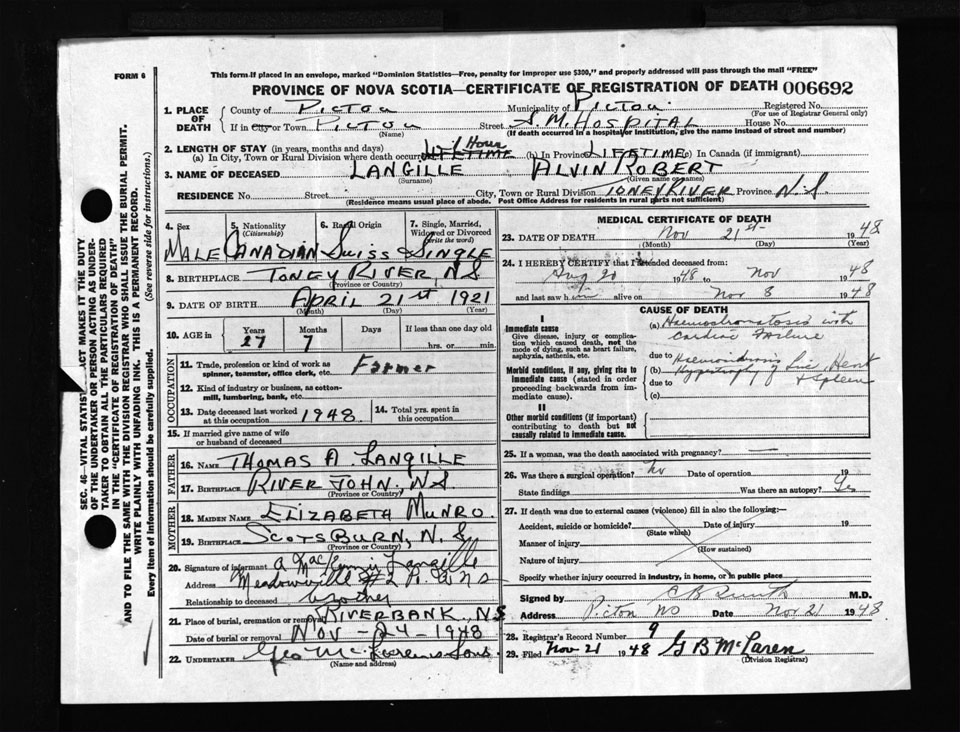 FORM 6
This form if placed in an envelope, marked "Dominion Statistics—Free, penalty for improper use $300," and properly addressed will pass through the mail "FREE"
PROVINCE OF NOVA SCOTIA—CERTIFICATE OF REGISTRATION OF DEATH 006692
1. PLACE OF DEATH County of PICTOU Municipality of PICTOU. Registered No.
(For use of Registrar General only)
If in City or Town PICTOU Street S.M. HOSPITAL House No.
(Name) (If death occurred in a hospital or institution, give the name instead of street and number)
2. LENGTH OF STAY (in years, months and days) 1 Hour
(a) In City, Town or Rural Division where death occurred LIFETIME (b) In Province LIFETIME (c) In Canada (if immigrant)
3. NAME OF DECEASED LANGILLE ALVIN ROBERT
(Surname) (Given name or names)
RESIDENCE No. Street City, Town or Rural Division TONEY RIVER Province N.S
(Residence means usual place of abode. Post Office Address for residents in rural parts not sufficient)
4. Sex 5. Nationality (Citizenship) 6. Racial Origin 7. Single, Married, Widowed or Divorced (write the word)
MALE CANADIAN SWISS SINGLE
8. BIRTHPLACE TONEY RIVER, NS
(Province or Country)
9. DATE OF BIRTH APRIL 21st 1921
(Month) (Day) (Year)
10. AGE in Years Months Days If less than one day old
27 7 hrs. or min.
OCCUPATION
11. Trade, profession or kind of work as spinner, teamster, office clerk, etc. Farmer
12. Kind of industry or business, as cotton-mill, lumbering, bank, etc.
13. Date deceased last worked at this occupation 1948. 14. Total yrs. spent in this occupation
15. If married give name of wife or husband of deceased
FATHER
16. NAME THOMAS A. LANGILLE
17. BIRTHPLACE RIVER JOHN, NS
(Province or Country)
MOTHER
18. MAIDEN NAME ELIZABETH MUNRO.
19. BIRTHPLACE SCOTSBURN, N.S
(Province or Country)
20. Signature of informant A MacKenzie Langille
Address Meadowville #2 NS
Relationship to deceased brother
21. Place of burial, cremation or removal RIVERBANK, NS
Date of burial or removal NOV - 24 - 1948
22. UNDERTAKER Geo McLaren & Sons.
(Name and address)
MEDICAL CERTIFICATE OF DEATH
23. DATE OF DEATH Nov 21st 1948
(Month) (Day) (Year)
24. I HEREBY CERTIFY that I attended deceased from:
Aug 20 1948 to Nov 1948
and last saw him alive on Nov 8 1948
CAUSE OF DEATH
I
Immediate cause
Give disease, injury or complication which caused death, not the mode of dying, such as heart failure, asphyxia, asthenia, etc.
(a) Haemochromatosis with cardiac failure
due to
Morbid conditions, if any, giving rise to immediate cause (stated in order proceeding backwards from immediate cause).
(b) Hypertrophy of Liver, Heart & Spleen
due to
(c)
II
Other morbid conditions (if important) contributing to death but not causally related to immediate cause.
25. If a woman, was the death associated with pregnancy?
26. Was there a surgical operation? No Date of operation 19
State findings Was there an autopsy? Yes
27. If death was due to external causes (violence) fill in also the following:—
Accident, suicide or homicide? Date of injury 19
(State which)
Manner of injury
(How sustained)
Nature of injury
Specify whether injury occurred in industry, in home, or in public place
Signed by M.D.
Address Pictou NS Date Nov 21 1948
28. Registrar's Record Number 9
29. Filed Nov 21 1948 G B McLaren
(Division Registrar)
SEC. 46—VITAL STATISTICS ACT MAKES IT THE DUTY
OF THE UNDERTAKER OR PERSON ACTING AS UNDERTAKER TO OBTAIN ALL THE PARTICULARS REQUIRED
IN THE "CERTIFICATE OF REGISTRATION OF DEATH"
AND TO FILE THE SAME WITH THE DIVISION REGISTRAR WHO SHALL ISSUE THE BURIAL PERMIT.
WRITE PLAINLY WITH UNFADING INK. THIS IS A PERMANENT RECORD.
Every item of information should be carefully supplied. (See reverse side for instructions.)